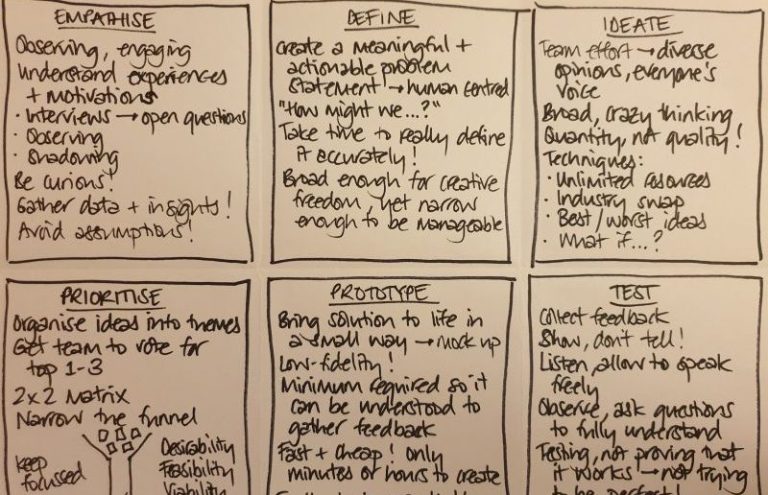 EMPATHISE
Observing, engaging
understand experiences
+ motivations
· Interviews → open questions
· Observing
· Shadowing
Be curious!
Gather data + insights!
Avoid assumptions!
DEFINE
Create a meaningful +
actionable problem
statement → human centred
"How might we...?"
Take time to really define
it accurately!
Broad enough for creative
freedom, yet narrow
enough to be manageable
IDEATE
Team effort → diverse
opinions, everyone's
voice
Broad, crazy thinking
Quantity, not quality!
Techniques:
· Unlimited resources
· Industry swap
· Best/worst ideas
· What if...?
PRIORITISE
Organise ideas into themes
Get team to vote for
top 1-3
2x2 Matrix
Narrow the funnel
keep
focussed
Desirability
Feasibility
Viability
PROTOTYPE
Bring solution to life in
a small way → mock up
Low-fidelity!
Minimum required so it
can be understood to
gather feedback
Fast + cheap! only
minutes or hours to create
TEST
Collect feedback
Show, don't tell!
Listen, allow to speak
freely
Observe, ask questions
to fully understand
Testing, not proving that
it works → not trying
to be perfect!